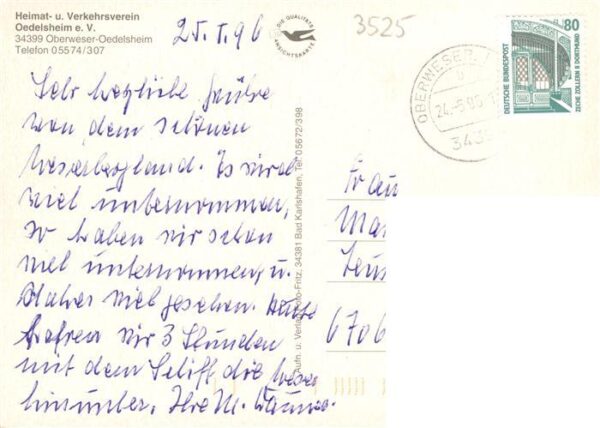 Heimat- u. Verkehrsverein
Oedelsheim e. V.
34399 Oberweser-Oedelsheim
Telefon 05574/307
DIE QUALITÄTS
ANSICHTSKARTE
3525
80
DEUTSCHE BUNDESPOST
ZECHE ZOLLERN II DORTMUND
OBERWESER
Sehr herzliche Grüße
von dem schönen
Weserbergland. Es wird
viel unternommen,
so haben wir schon
viel unternommen, u.
daher viel gesehen. Heute
fahren wir 3 Stunden
mit dem Schiff die Weser
hinunter. Ihre M.
Aufn. u. Verlag Foto-Fritz, 34381 Bad Karlshafen, Tel. 05672/398
Frau
6706